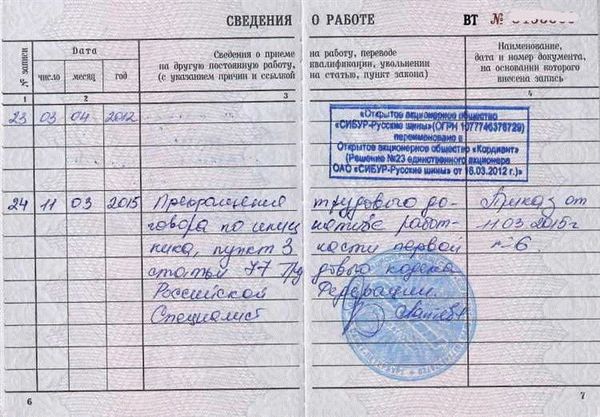 СВЕДЕНИЯ О РАБОТЕ
ВТ №
№ записи
Дата
число месяц год
Сведения о приеме
на другую постоянную работу,
(с указанием причин и ссылкой
на работу, переводе
квалификации, увольнении
на статью, пункт закона)
Наименование,
дата и номер документа,
на основании которого
внесена запись
1 2 3 4
23 03 04 2012
«Открытое акционерное общество
«СИБУР-Русские шины» (ОГРН 1077746378729)
переименовано в
Открытое акционерное общество «Кордиант»
(Решение №23 единственного акционера
ОАО «СИБУР-Русские шины» от 16.03.2012 г.)»
24 11 03 2015 Прекращения трудового до- Приказ от
говора по иници нативе работ- 11.03.2015г
ника, пункт 3 ности первой №6.
статьи 77 Тру дового кодекса
Российской Федерации.
Специалист
6
7